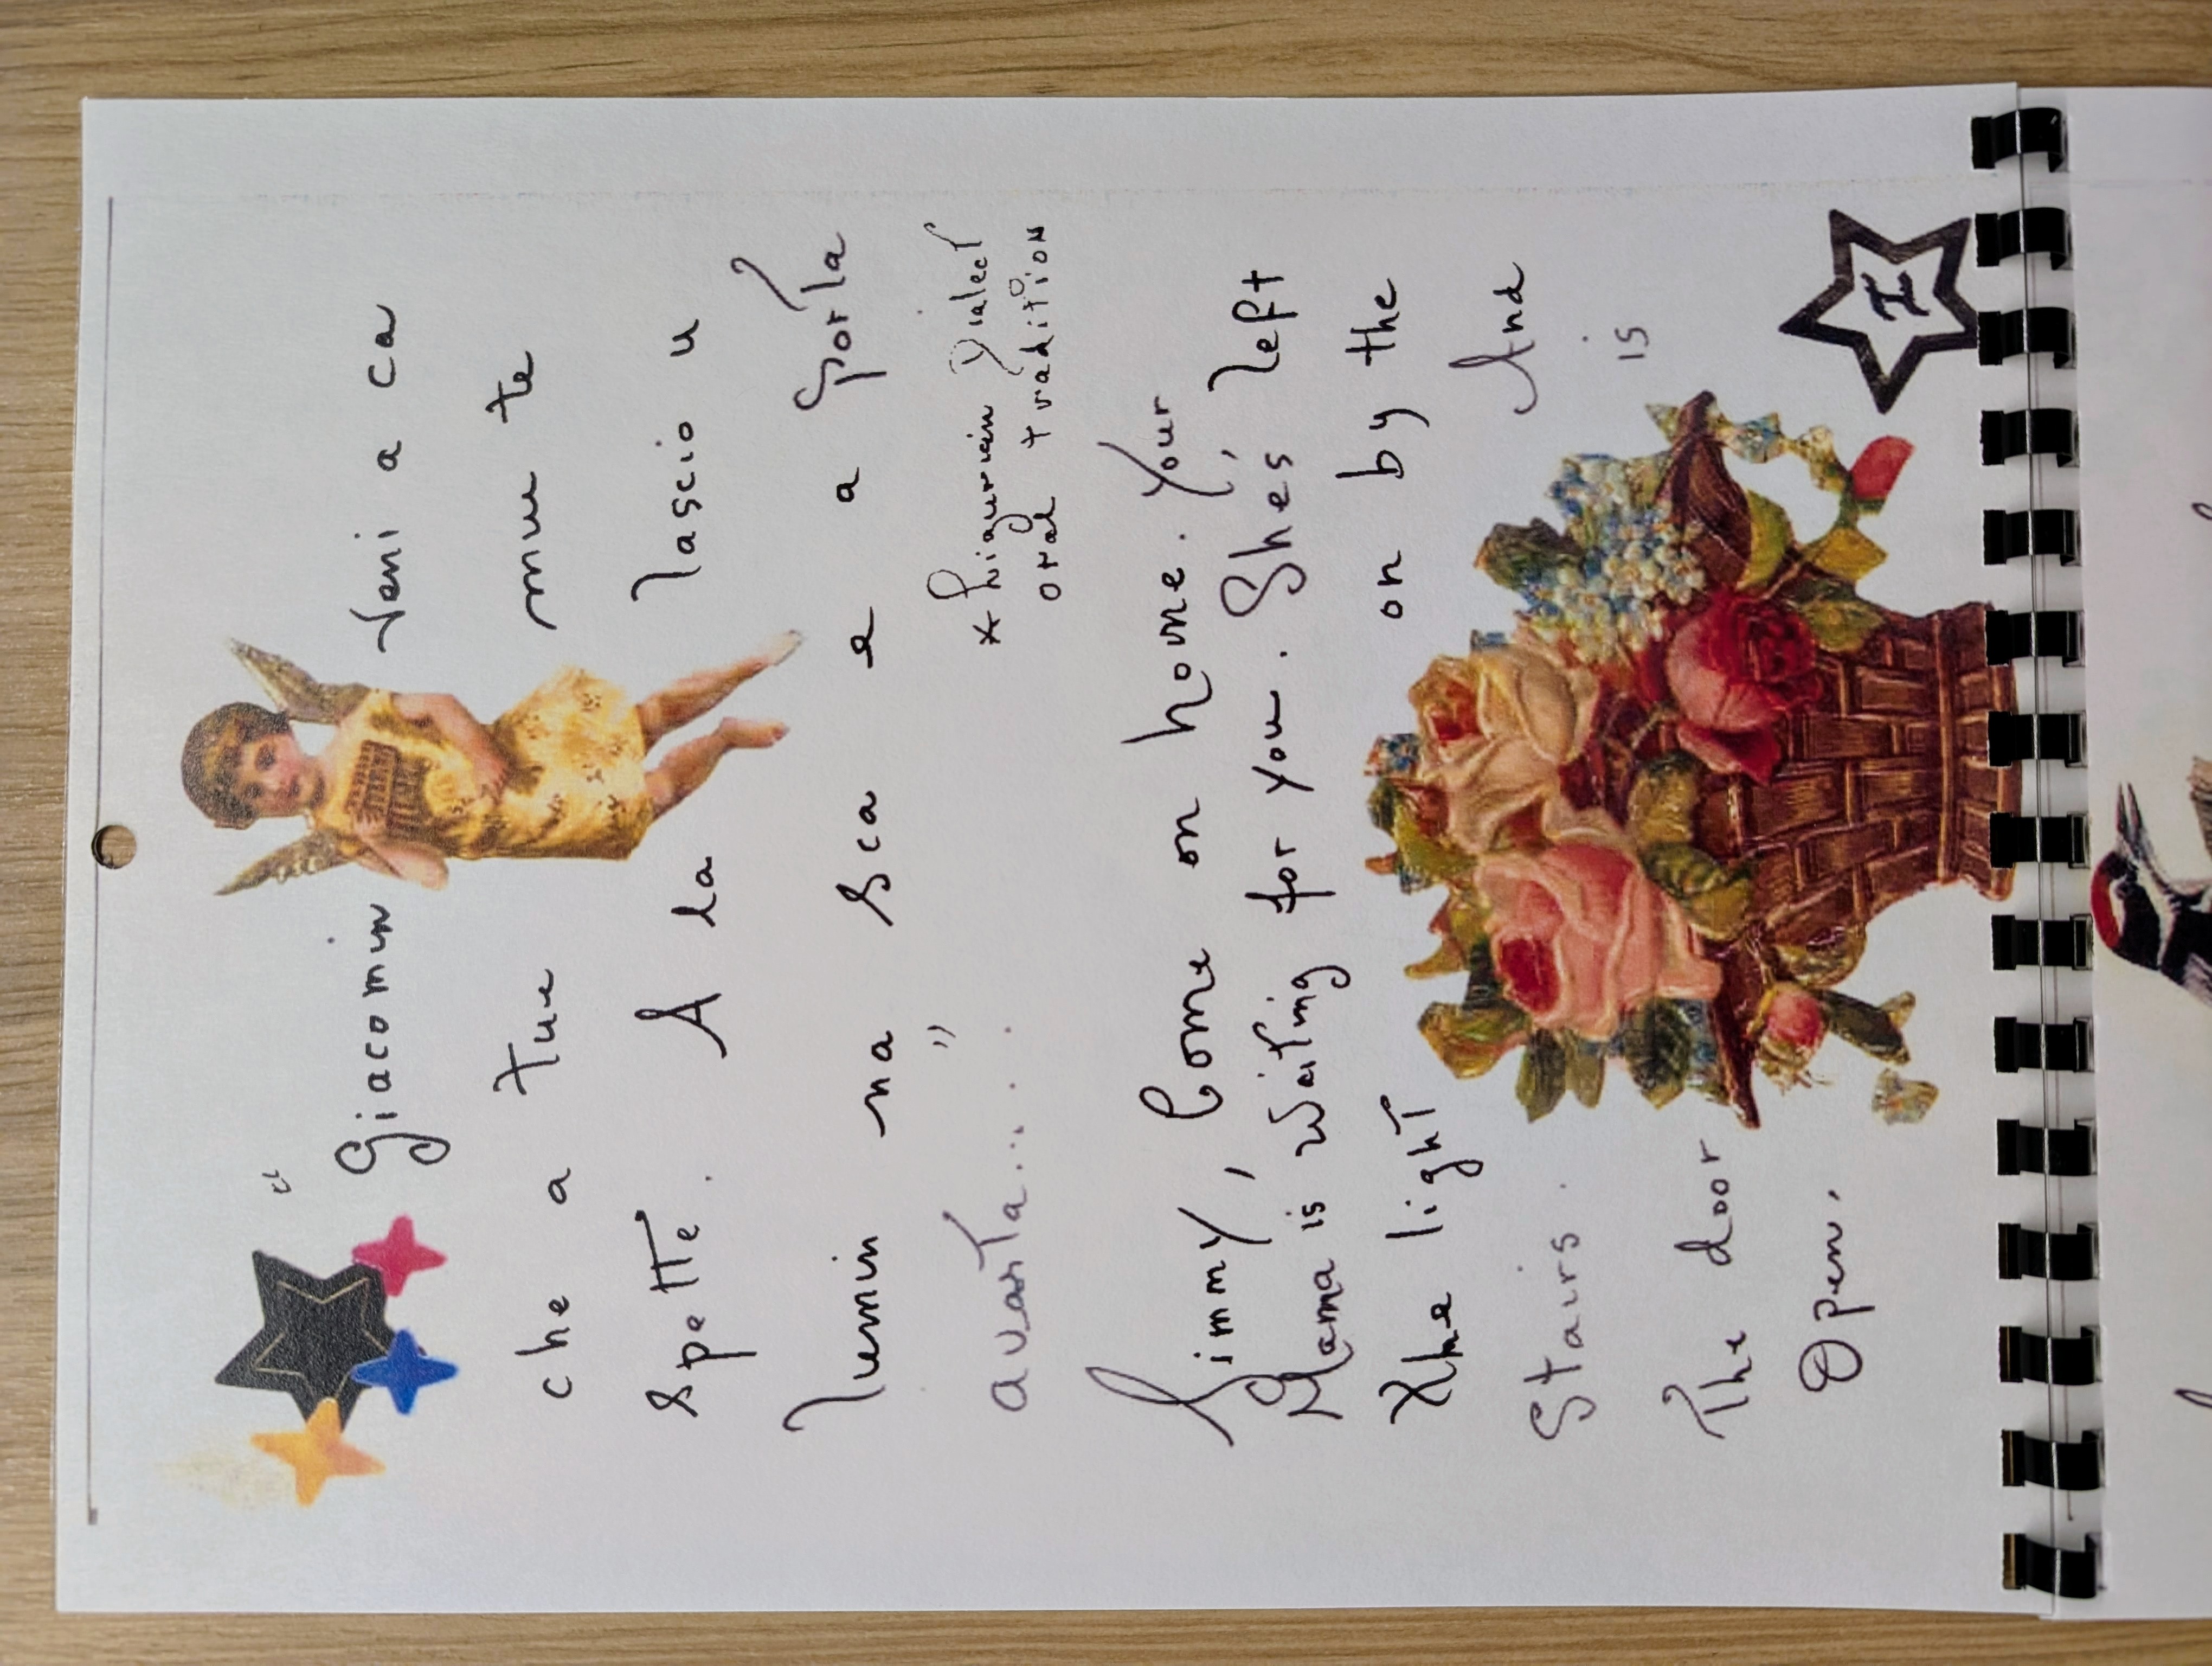 " Giacomin veni a ca
che a tue mu te
spette. A la lascio u
lumin na sca e a porta
avarta.... "
* Liaguriain Dialect
oral tradition
Jimmy, Come on home. Your
Mama is waiting for you. Shes' left
The light on by the
Stairs. And
The door is
Open.
II